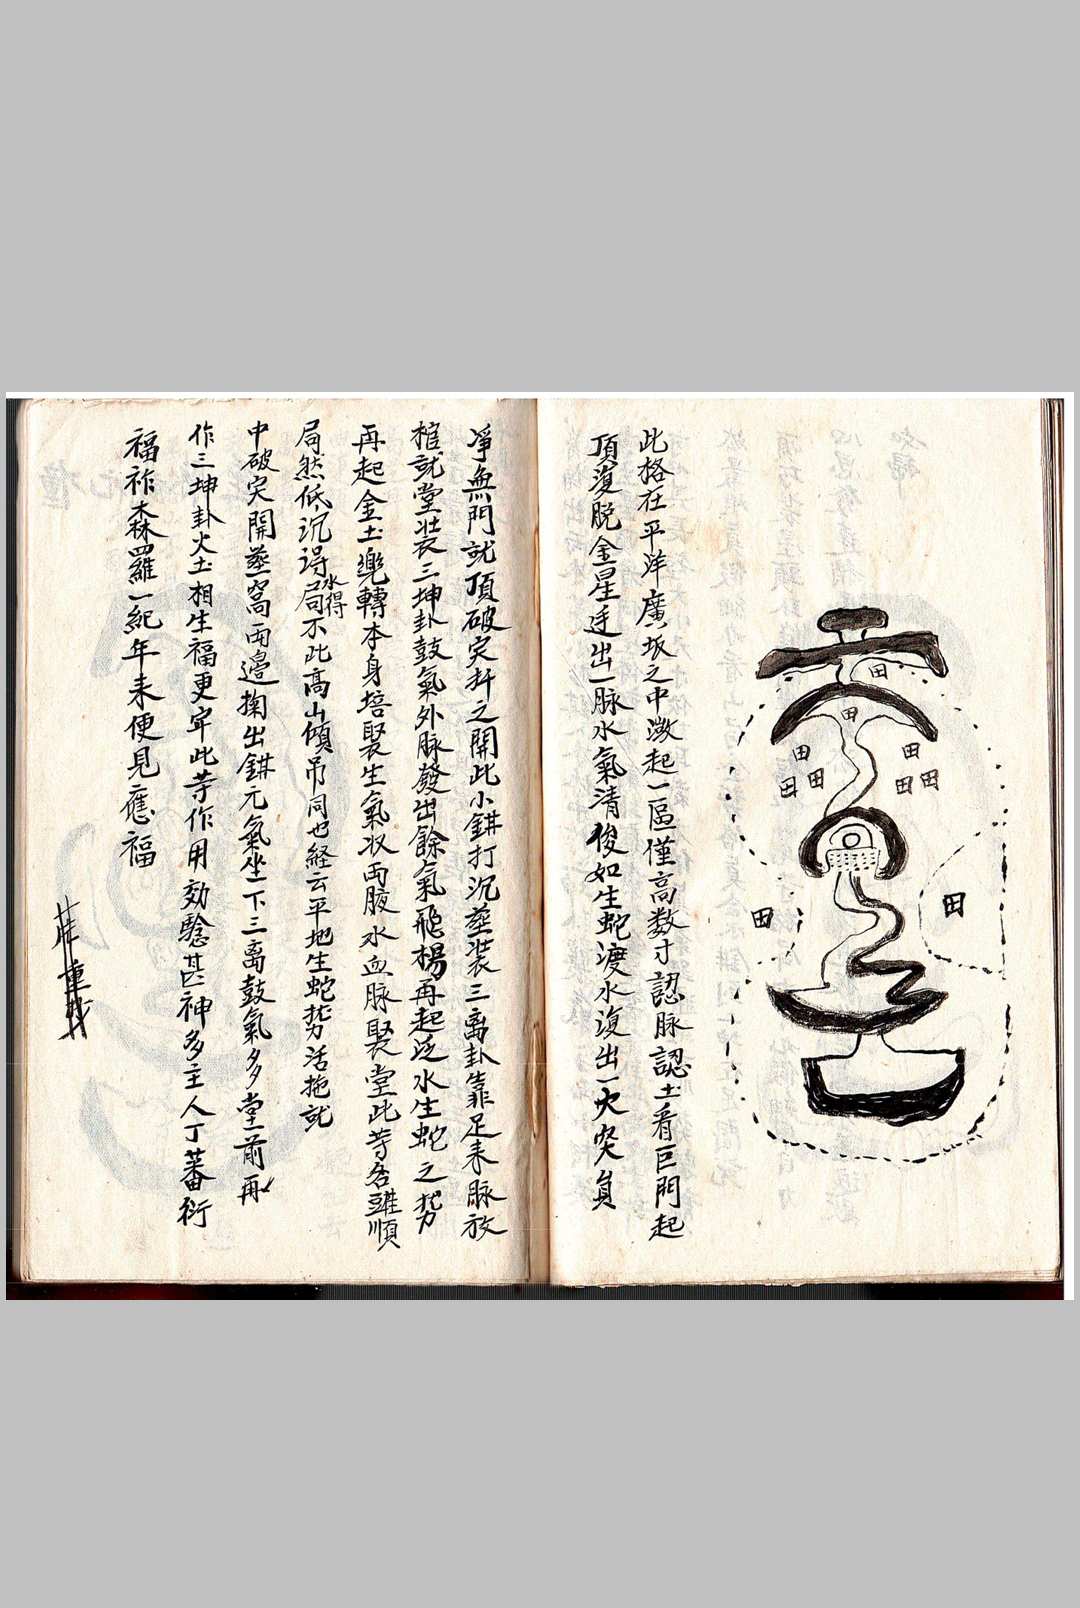 此格在平洋廣坂之中微起一區僅高数寸認脉認土看巨門起
頂復脫金星迋出一脉水氣清俊如生蛇渡水復出一大突員
淨無門就頂破突扦之開此小鉗打沉塟装三离卦靠足来脉放
棺就堂装三坤卦鼓氣外脉發出餘氣飛楊再起泛水生蛇之势
再起金土兠轉本身培聚生氣収両腋水血脉聚堂此等名雖順
局然低沉得局不此高山傾吊同也経云平地生蛇势活拖就
水得
中破突開塟窩両邊掬出鉗元氣坐下三离鼓氣多堂前再
作三坤卦火土相生福更牢此等作用効驗甚神多主人丁蕃衍
福祚森羅一紀年来便見應福
田
田
田
田
田
田
田
田
田
田